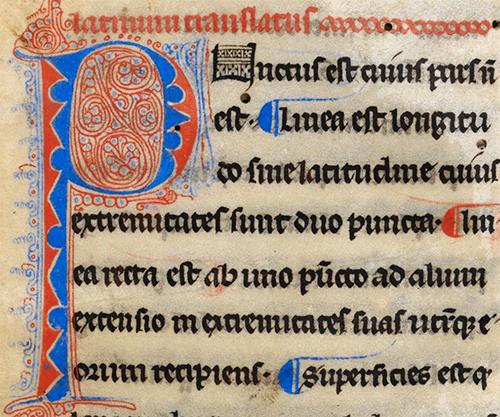 latinum translatus
Punctus est cuius pars n̄
est. Linea est longitu
do sine latitudine cuius
extremitates sunt duo puncta. lin
ea recta est ab uno pūcto ad alium
extensio in extremitates suas utrūqꝫ e
orum recipiens. Superficies est q